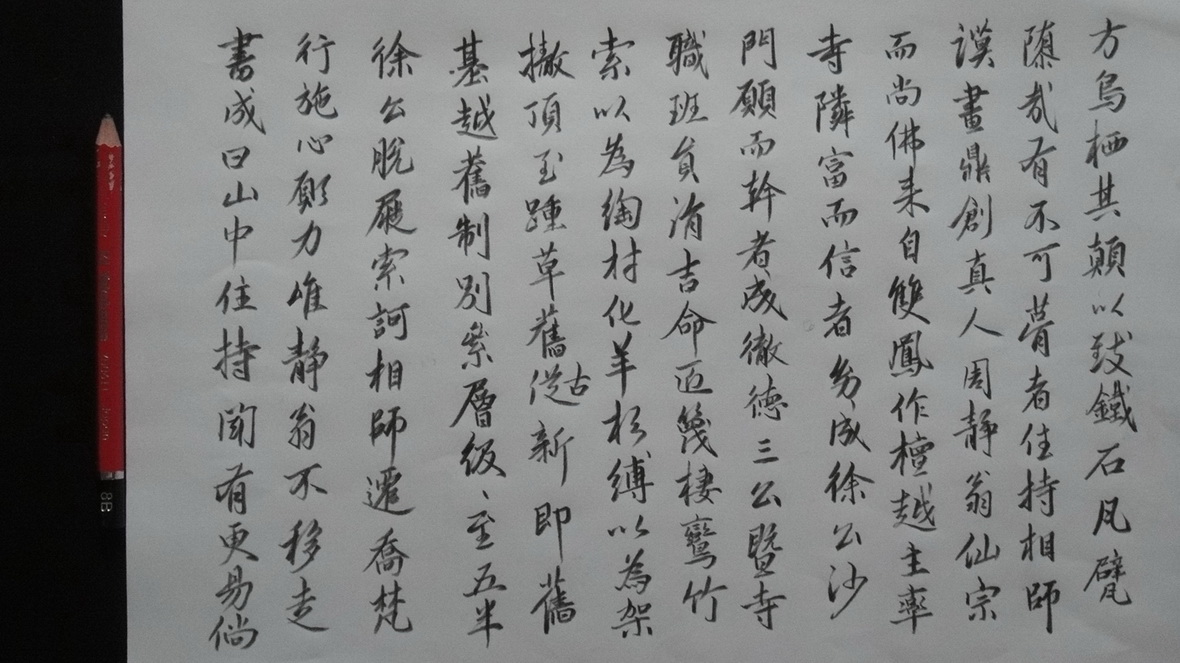 方烏栖其顛以致鐵石凡甓
隳哉有不可瞢者住持相師
謨畫鼎創真人周靜翁仙宗
而尚佛来自雙鳳作檀越主率
寺隣富而信者劣成徐公沙
門願而幹者成徹德三公暨寺
職班貟涓吉命匠筏棲鸞竹
索以為綯村化羊杉縛以為架
撤頂至踵草舊從古新即舊
基越舊制別紮層級、至五半
徐公脫屣索訶相師遷喬梵
行施心願力唯靜翁不移走
書成曰山中住持聞有更易倘
8B